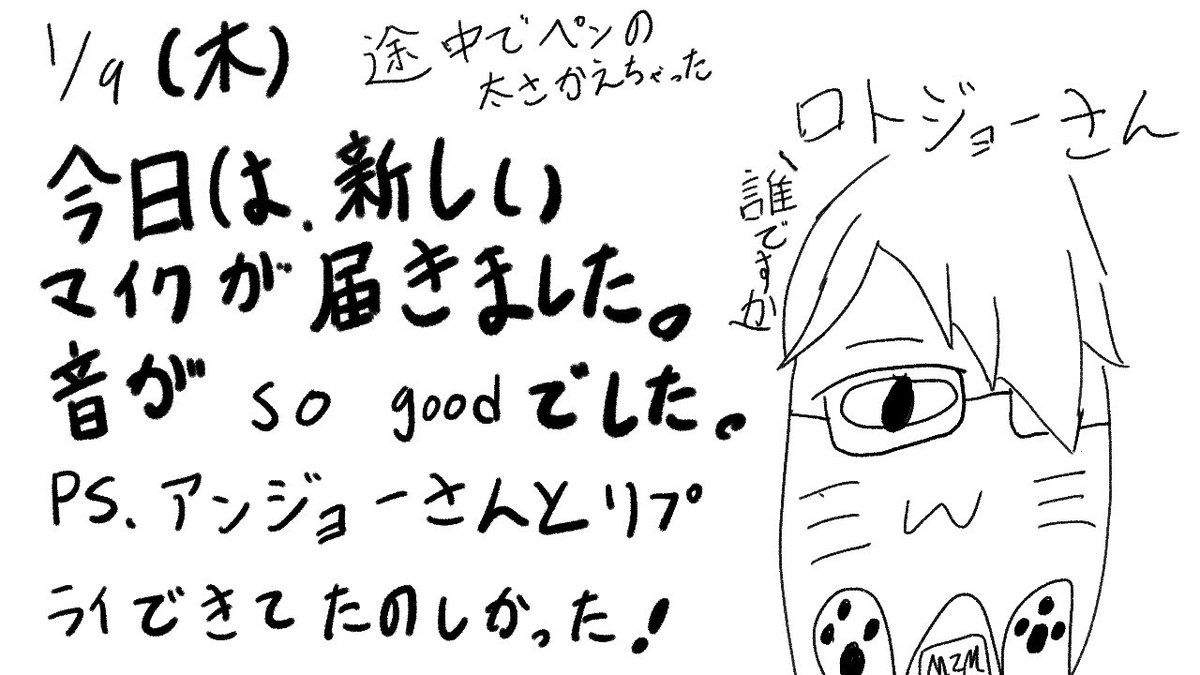 1/9(木)
途中でペンの
太さかえちゃった
今日は、新しい
マイクが届きました。
音が so goodでした。
PS.アンジョーさんとリプ
ライできてたのしかった!
ロトジョーさん
誰ですか
MZM